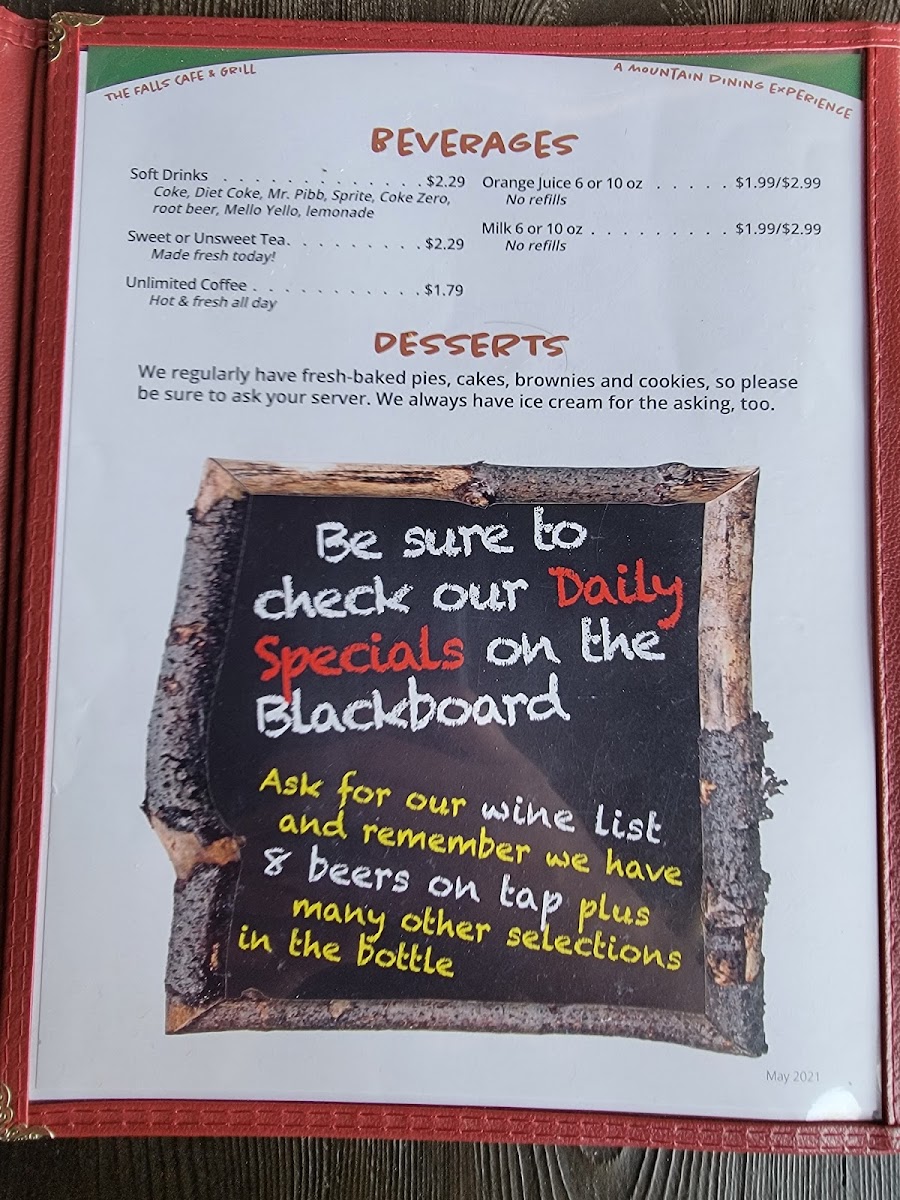 THE FALLS CAFE & GRILL
A MOUNTAIN DINING EXPERIENCE
BEVERAGES
Soft Drinks . . . . . . . . . . . . . $2.29
Coke, Diet Coke, Mr. Pibb, Sprite, Coke Zero,
root beer, Mello Yello, lemonade
Sweet or Unsweet Tea. . . . . . . . . $2.29
Made fresh today!
Unlimited Coffee . . . . . . . . . . . $1.79
Hot & fresh all day
Orange Juice 6 or 10 oz . . . . . . $1.99/$2.99
No refills
Milk 6 or 10 oz . . . . . . . . . . $1.99/$2.99
No refills
DESSERTS
We regularly have fresh-baked pies, cakes, brownies and cookies, so please
be sure to ask your server. We always have ice cream for the asking, too.
Be sure to
check our Daily
Specials on the
Blackboard
Ask for our wine list
and remember we have
8 beers on tap plus
many other selections
in the bottle
May 2021